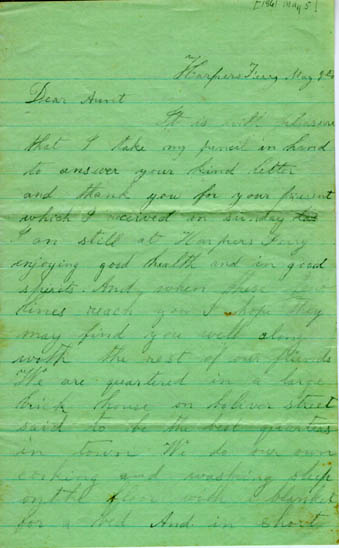 [1861 May 5]
Harpers Ferry May
Dear Aunt
It is with pleasure
that I take my pencil in hand
to answer your kind letter
and thank you for your present
which I received on sunday
I am still at Harpers Ferry
enjoying good health and in good
spirits. And when these few
lines reach you I hope they
may find you well along
with the rest of our friends
We are quartered in a large
brick house on street
said to be the best quarters
in town We do our own
cooking and washing sleep
on the floor with a blanket
for a bed And in short